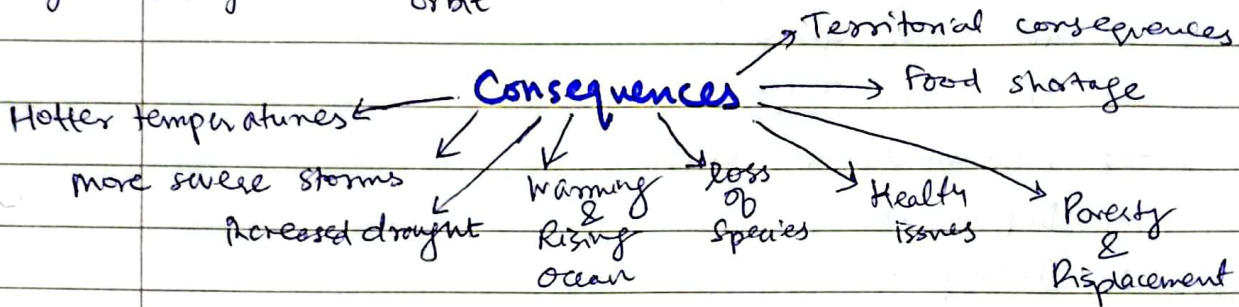 orbit
Territorial consequences
Consequences
Food shortage
Hotter temperatures
more severe storms
increased drought
Warming
&
Rising
ocean
loss
of
Species
Health
issues
Poverty
&
Displacement